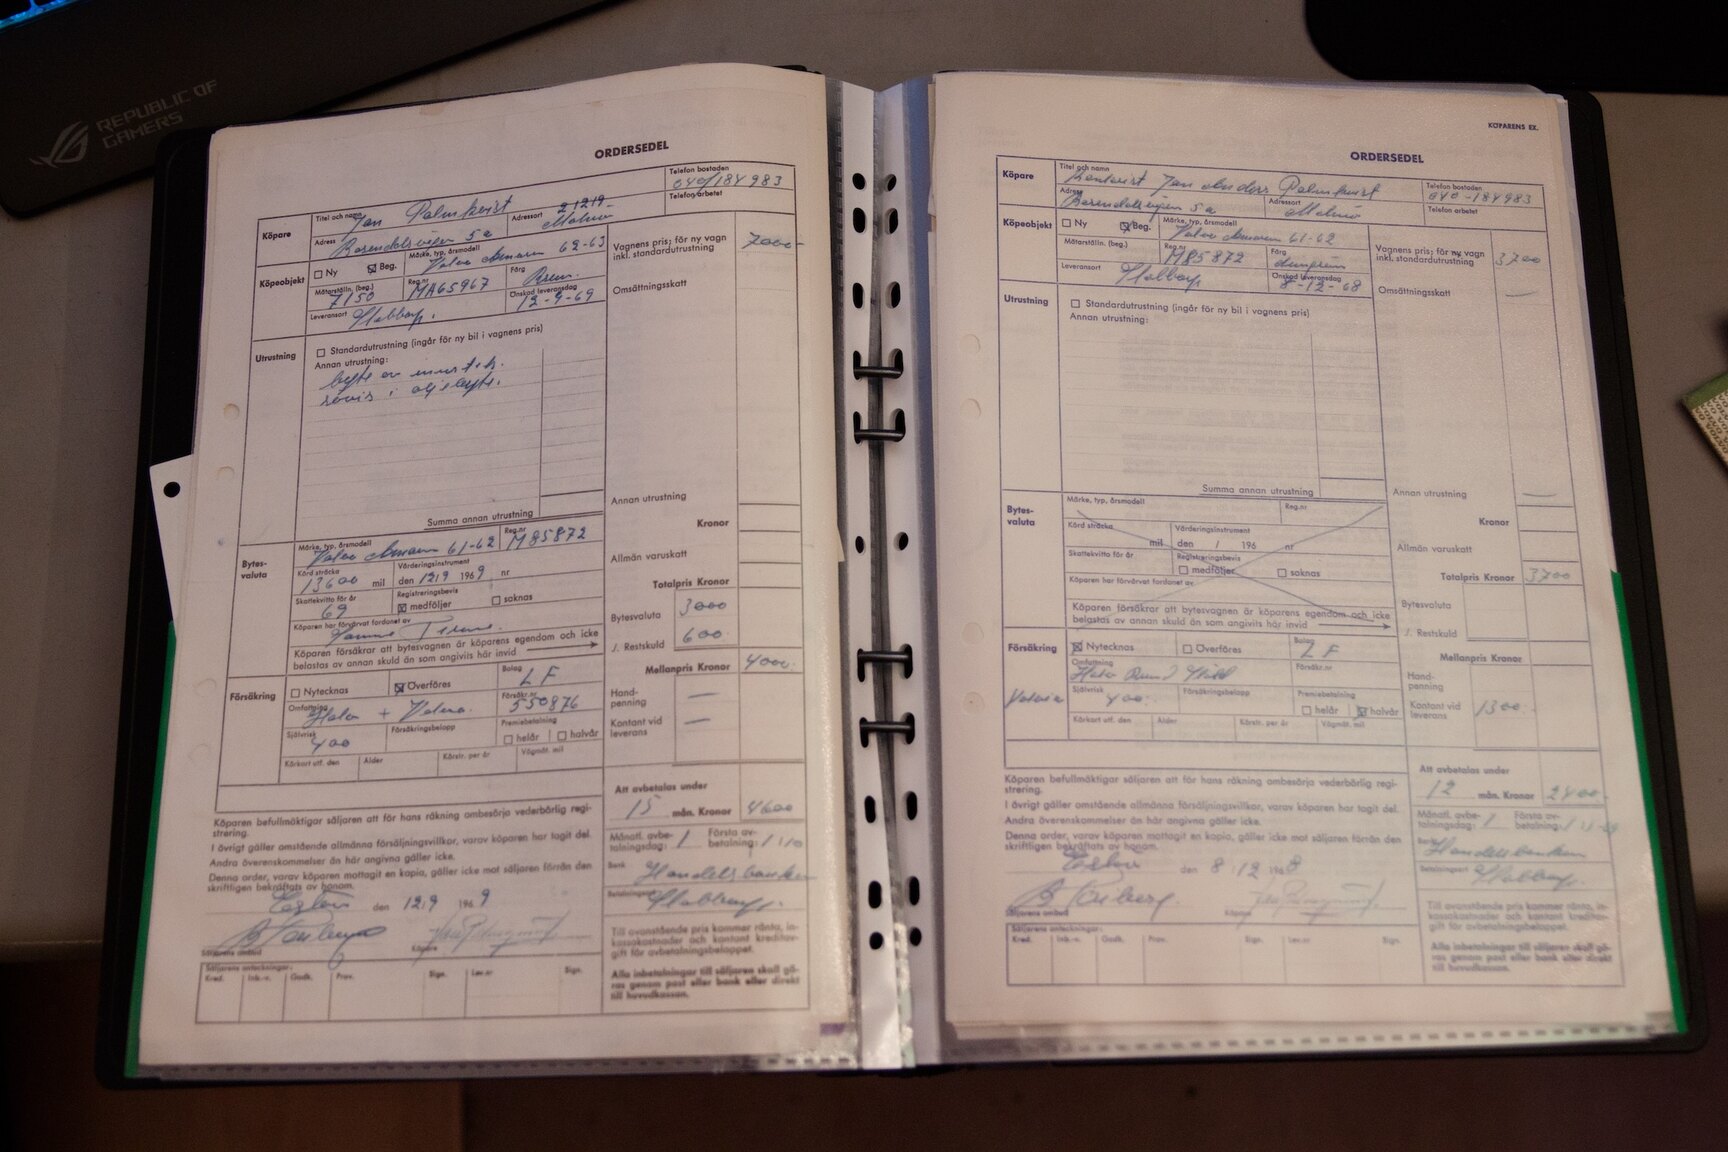 REPUBLIC OF
GAMERS
ORDERSEDEL
Köpare
Titel och namn
Jan Palmkvist
Telefon bostaden
040/184983
Telefon arbetet
Adress
Rosendalsvägen 5a
Adressort
21219-
Malmö
Köpeobjekt
Ny
Beg.
Märke, typ, årsmodell
Volvo Amason 62-63
Mätarställn. (beg.)
7150
Reg.nr
MA65967
Färg
Önskad leveransdag
12-9-69
Leveransort
Vagnens pris; för ny vagn
inkl. standardutrustning
7000-
Omsättningsskatt
Utrustning
Standardutrustning (ingår för ny bil i vagnens pris)
Annan utrustning:
byte av
i oljebyte.
Summa annan utrustning
Annan utrustning
Kronor
Allmän varuskatt
Totalpris Kronor
Bytes-
valuta
Märke, typ, årsmodell
Volvo Amason 61-62
Reg.nr
M85872
Körd sträcka
13600 mil
Värderingsinstrument
den 12/9 1969 nr
Skattekvitto för år
69
Registreringsbevis
medföljer
saknas
Köparen har förvärvat fordonet av
Köparen försäkrar att bytesvagnen är köparens egendom och icke
belastas av annan skuld än som angivits här invid
Bytesvaluta
3000
./. Restskuld
600-
Mellanpris Kronor
4000-
Försäkring
Nytecknas
Överföres
Bolag
LF
Omfattning
Halv +
Försäkr.nr
550876
Självrisk
400
Försäkringsbelopp
Premiebetalning
helår
halvår
Körkort utf. den
Ålder
Körstr. per år
Vägmät. mil
Hand-
penning
—
Kontant vid
leverans
—
Att avbetalas under
15 mån. Kronor 4600
Månatl. avbe-
talningsdag: 1
Första av-
betalning: 1/10
Bank
Handelsbanken
Betalningsort
Köparen befullmäktigar säljaren att för hans räkning ombesörja vederbörlig regi-
strering.
I övrigt gäller omstående allmänna försäljningsvillkor, varav köparen har tagit del.
Andra överenskommelser än här angivna gäller icke.
Denna order, varav köparen mottagit en kopia, gäller icke mot säljaren förrän den
skriftligen bekräftats av honom.
Eslöv den 12/9 1969
Säljarens ombud
Köpare
Till ovanstående pris kommer ränta, in-
kassokostnader och kontant kreditav-
gift för avbetalningsbeloppet.
Alla inbetalningar till säljaren skall gö-
ras genom post eller bank eller direkt
till huvudkassan.
Säljarens anteckningar:
Kred.
Ink.-v.
Godk.
Prov.
Sign.
Lev.nr
Sign.
KÖPARENS EX.
ORDERSEDEL
Köpare
Titel och namn
Jan Anders Palmkvist
Telefon bostaden
040-184983
Telefon arbetet
Adress
Rosendalsvägen 5a
Adressort
Malmö
Köpeobjekt
Ny
Beg.
Märke, typ, årsmodell
Volvo Amason 61-62
Mätarställn. (beg.)
Reg.nr
M85872
Färg
Önskad leveransdag
8-12-68
Leveransort
Vagnens pris; för ny vagn
inkl. standardutrustning
3700
Omsättningsskatt
—
Utrustning
Standardutrustning (ingår för ny bil i vagnens pris)
Annan utrustning:
Summa annan utrustning
Annan utrustning
—
Kronor
Allmän varuskatt
Totalpris Kronor
3700
Bytes-
valuta
Märke, typ, årsmodell
Reg.nr
Körd sträcka
mil
Värderingsinstrument
den / 196 nr
Skattekvitto för år
Registreringsbevis
medföljer
saknas
Köparen har förvärvat fordonet av
Köparen försäkrar att bytesvagnen är köparens egendom och icke
belastas av annan skuld än som angivits här invid
Bytesvaluta
./. Restskuld
Mellanpris Kronor
Försäkring
Nytecknas
Överföres
Bolag
LF
Omfattning
Försäkr.nr
Självrisk
400-
Försäkringsbelopp
Premiebetalning
helår
halvår
Körkort utf. den
Ålder
Körstr. per år
Vägmät. mil
Hand-
penning
Kontant vid
leverans
1300-
Att avbetalas under
12 mån. Kronor 2400-
Månatl. avbe-
talningsdag: 1
Första av-
betalning:
Bank
Handelsbanken
Betalningsort
Köparen befullmäktigar säljaren att för hans räkning ombesörja vederbörlig regi-
strering.
I övrigt gäller omstående allmänna försäljningsvillkor, varav köparen har tagit del.
Andra överenskommelser än här angivna gäller icke.
Denna order, varav köparen mottagit en kopia, gäller icke mot säljaren förrän den
skriftligen bekräftats av honom.
Eslöv den 8/12 1968
Säljarens ombud
Köpare
Till ovanstående pris kommer ränta, in-
kassokostnader och kontant kreditav-
gift för avbetalningsbeloppet.
Alla inbetalningar till säljaren skall gö-
ras genom post eller bank eller direkt
till huvudkassan.
Säljarens anteckningar:
Kred.
Ink.-v.
Godk.
Prov.
Sign.
Lev.nr
Sign.